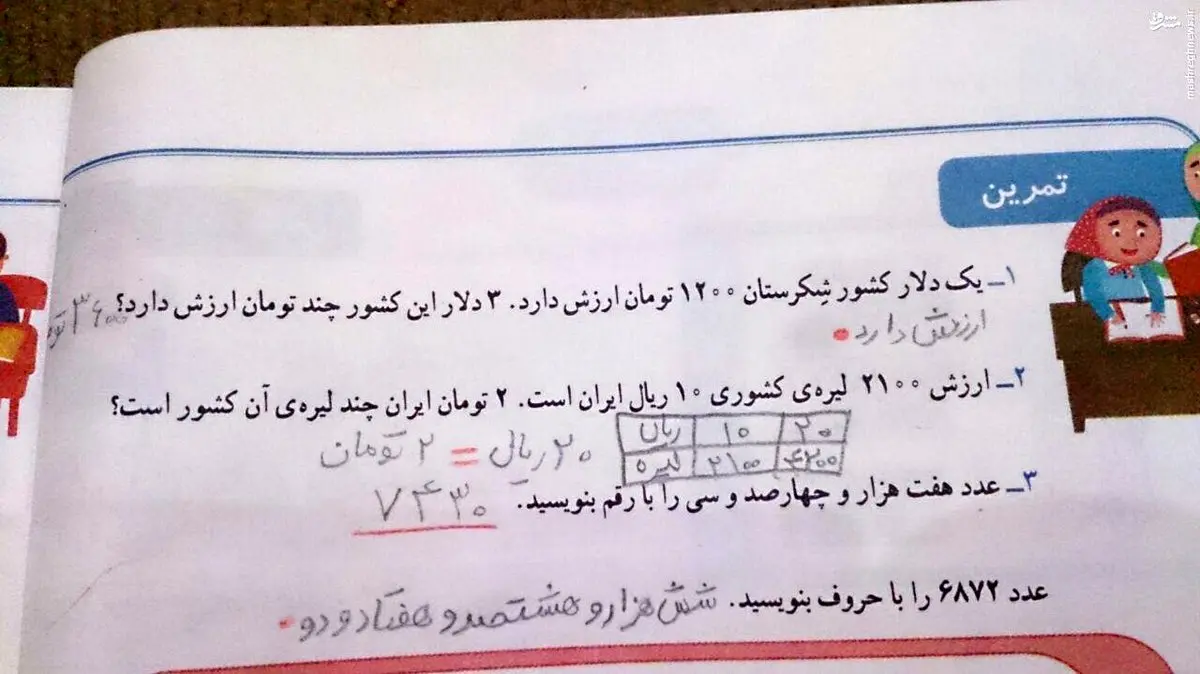 مشرق
mashreghnews.ir
تمرین
۱ـ یک دلار کشور شِکرستان ۱۲۰۰ تومان ارزش دارد. ۳ دلار این کشور چند تومان ارزش دارد؟ ۳۶۰۰ تو
ارزش دارد.
۲ـ ارزش ۲۱۰۰ لیره‌ی کشوری ۱۰ ریال ایران است. ۲ تومان ایران چند لیره‌ی آن کشور است؟
ریال ۱۰ ۲۰
لیره ۲۱۰۰ ۴۲۰۰
۲۰ ریالی = ۲ تومان
۳ـ عدد هفت هزار و چهارصد و سی را با رقم بنویسید. ۷۴۳۰
عدد ۶۸۷۲ را با حروف بنویسید. شش هزار و هشتصد و هفتاد و دو.